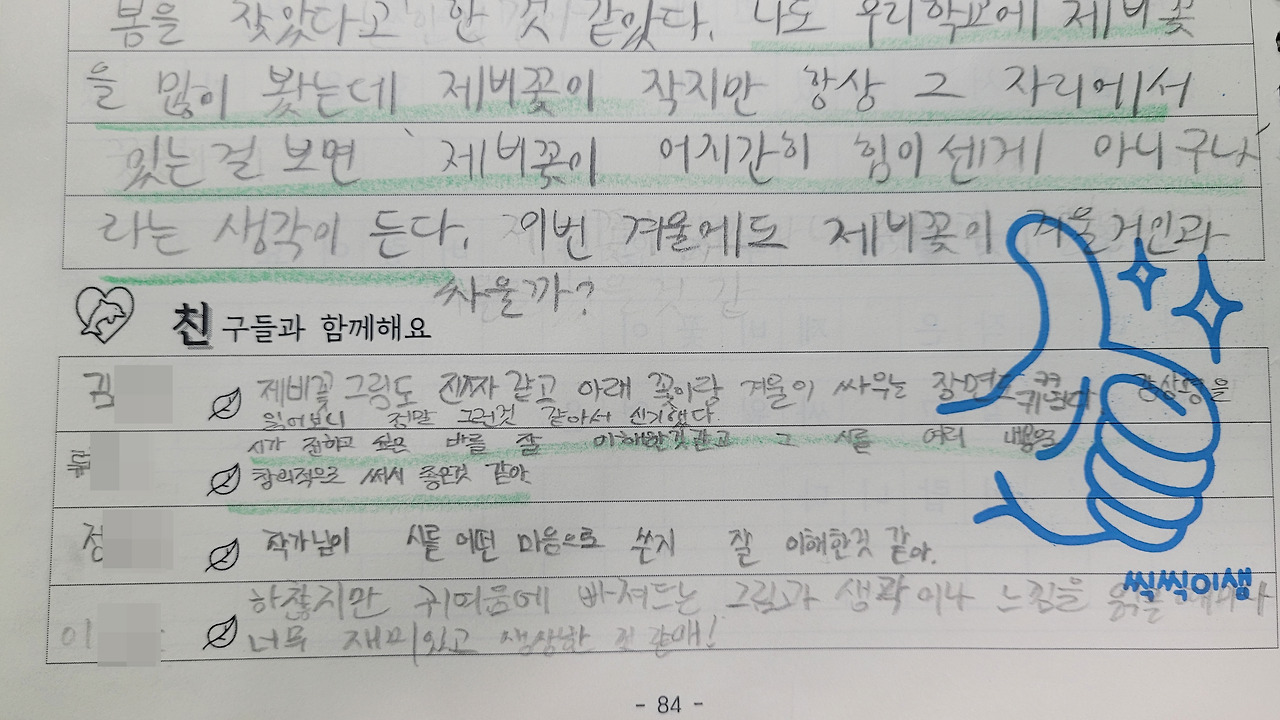 봄을 찾았다고 한 것 같았다. 나도 우리학교에 제비꽃
을 많이 봤는데 제비꽃이 작지만 항상 그 자리에서
있는 걸 보면 제비꽃이 어지간히 힘이 센게 아니구나
라는 생각이 든다. 이번 겨울에도 제비꽃이 겨울거인과
싸울까?
친구들과 함께해요
김
제비꽃 그림도 진짜 같고 아래 꽃이랑 겨울이 싸우는 장면도 귀엽다 감상평을
읽어보니 정말 그런것 같아서 신기했다.
류
시가 전하고 싶은 바를 잘 이해한것같고 그 시를 여러 내용을
창의적으로 써서 좋은것 같아
정
작가님이 시를 어떤 마음으로 쓴지 잘 이해한것 같아.
이
하찮지만 귀여움에 빠져드는 그림과 생각이나 느낌을
너무 재미있고 생생한 것 같애!
씩씩이샘
- 84 -